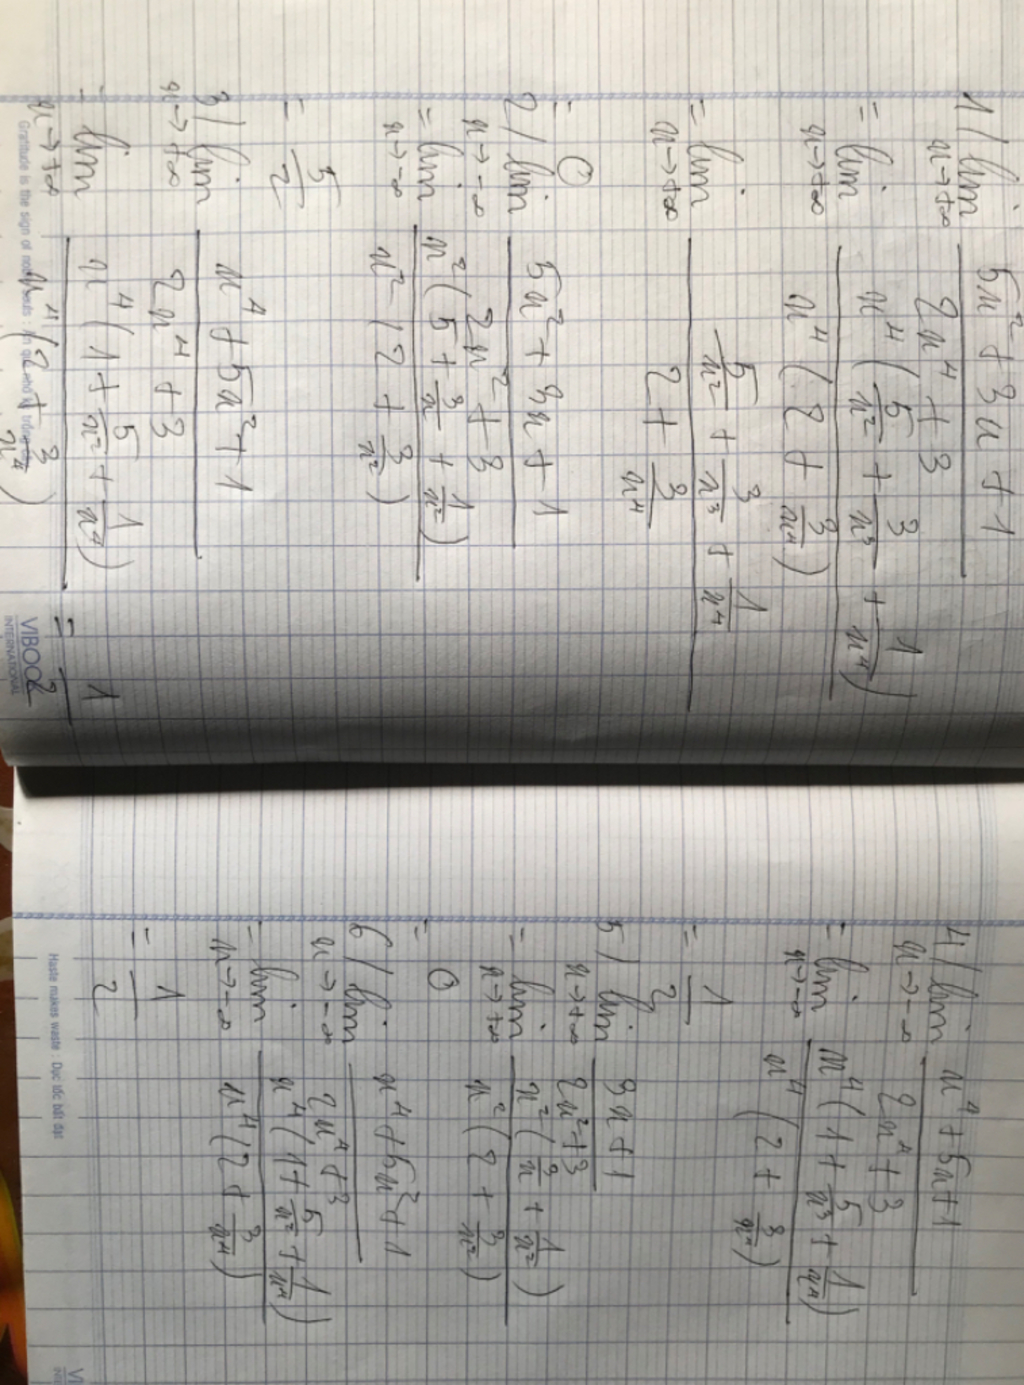 1/ lim x→+∞ (5x² + 3x + 1)/(2x⁴ + 3)
= lim x→+∞ x⁴(5/x² + 3/x³ + 1/x⁴)/x⁴(2 + 3/x⁴)
= lim x→+∞ (5/x² + 3/x³ + 1/x⁴)/(2 + 3/x⁴)
= 0
2/ lim x→-∞ (5x² + 3x + 1)/(2x² + 3)
= lim x→-∞ x²(5 + 3/x + 1/x²)/x² - (2 + 3/x²)
= 5/2
3/ lim x→+∞ (x⁴ + 5x² + 1)/(2x⁴ + 3)
= lim x→+∞ x⁴(1 + 5/x² + 1/x⁴)/x⁴(2 + 3/x⁴) = 1/2
Gratitude is the sign of noble
VIBOOK
INTERNATIONAL
4/ lim x→-∞ (x⁴ + 5x + 1)/(2x⁴ + 3)
= lim x→-∞ x⁴(1 + 5/x³ + 1/x⁴)/x⁴(2 + 3/x⁴)
= 1/2
5/ lim x→+∞ (3x + 1)/(2x² + 3)
= lim x→+∞ x²(3/x + 1/x²)/x²(2 + 3/x²)
= 0
6/ lim x→-∞ (x⁴ + 5x² + 1)/(2x⁴ + 3)
= lim x→-∞ x⁴(1 + 5/x² + 1/x⁴)/x⁴(2 + 3/x⁴)
= 1/2
Haste makes waste : Dục tốc bất đạt